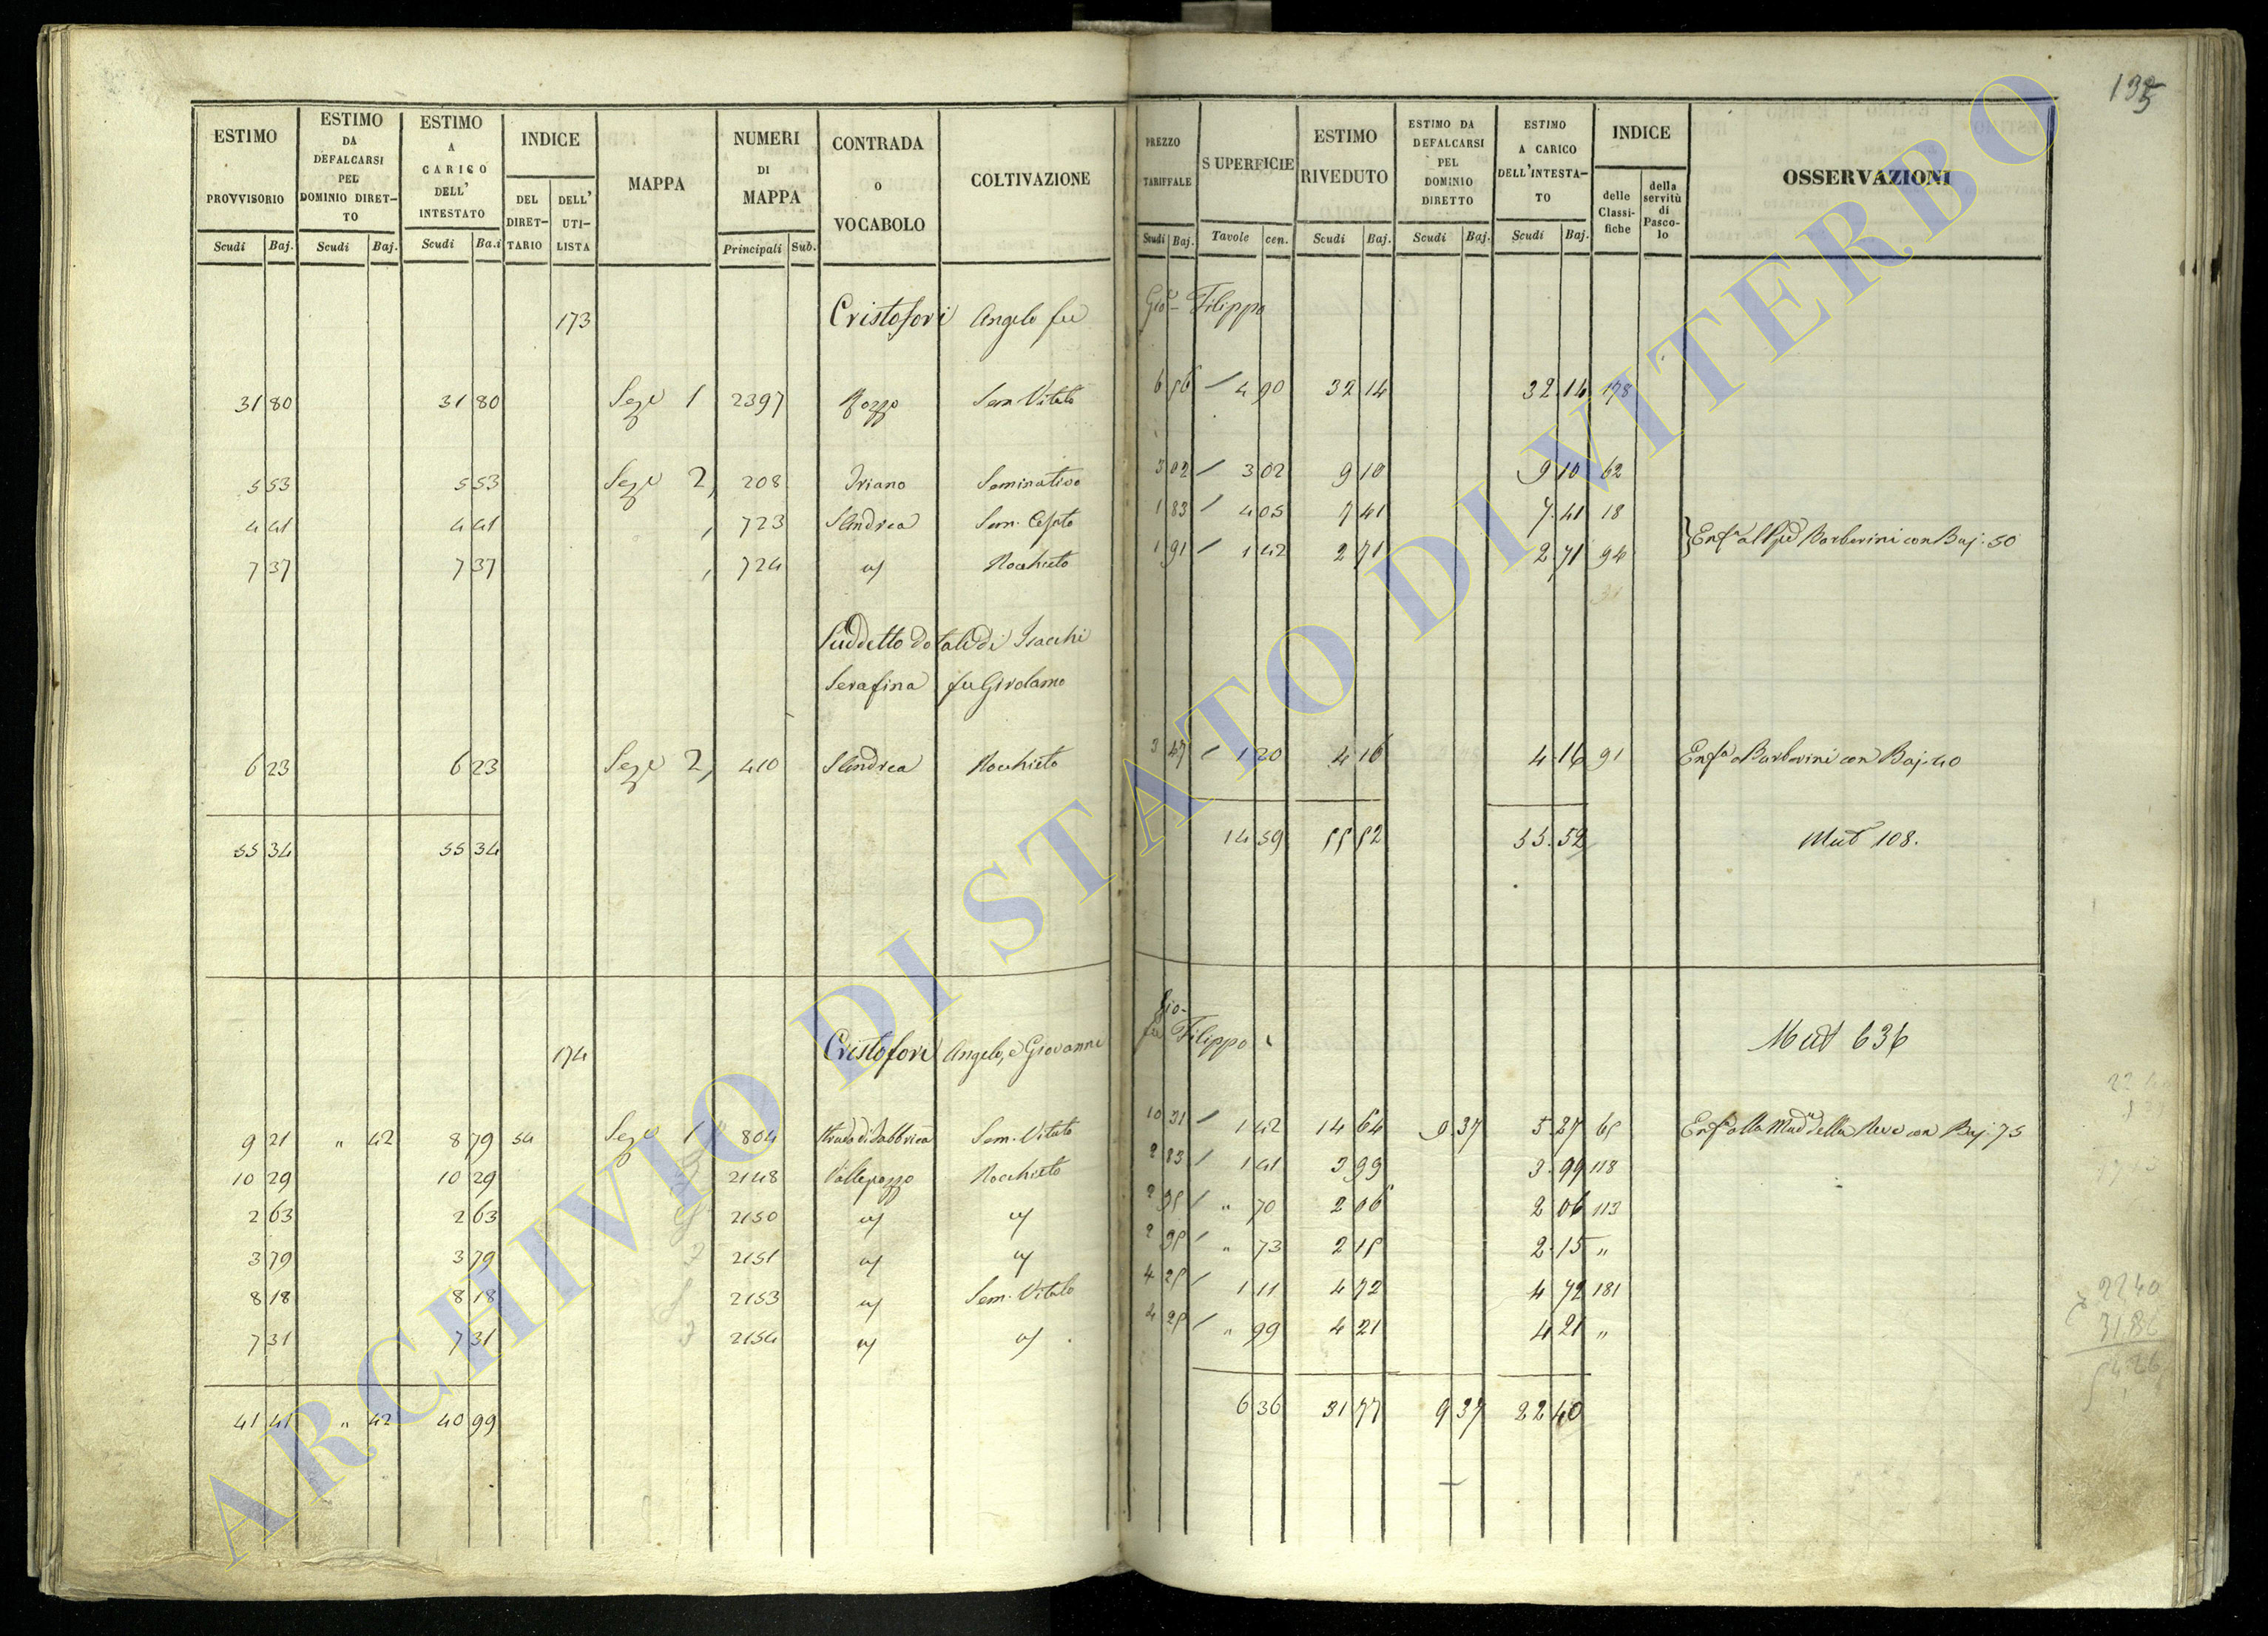 135
ESTIMO PROVVISORIO Scudi Baj.
ESTIMO DA DEFALCARSI PEL DOMINIO DIRETTO Scudi Baj.
ESTIMO A CARICO DELL' INTESTATO Scudi Ba.i
INDICE DEL DIRETTARIO DELL' UTILISTA
MAPPA
NUMERI DI MAPPA Principali Sub.
CONTRADA O VOCABOLO
COLTIVAZIONE
PREZZO TARIFFALE Scudi Baj.
SUPERFICIE Tavole cen.
ESTIMO RIVEDUTO Scudi Baj.
ESTIMO DA DEFALCARSI PEL DOMINIO DIRETTO Scudi Baj.
ESTIMO A CARICO DELL'INTESTATO Scudi Baj.
INDICE delle Classifiche della servitù di Pascolo
OSSERVAZIONI
173 Cristofori Angelo fu Gio- Filippo
31 80 31 80 Seze 1 2397 Pozzo Sem. Vitato 6 56 / 4 90 32 14 32 14 178
5 53 5 53 Seze 2, 208 Iriano Seminativo 3 02 / 3 02 9 10 9 10 62
4 41 4 41 , 723 S Andrea Sem. Cesato 1 83 / 4 05 7 41 7 41 18
7 37 7 37 , 724 " Nocchieto 1 91 / 1 42 2 71 2 71 94
Barberini con Baj. 50
Suddetto dotale di Isacchi
Serafina fu Girolamo
6 23 6 23 Seze 2, 410 S Andrea Nocchieto 3 47 / 1 20 4 16 4 16 91 Enfa a Barberini con Baj. 40
55 34 55 34 14 59 55 52 55. 52 Mut 108.
174 Cristofori Angelo, e Giovanni Gio-
fu Filippo Mut 636
9 21 " 42 8 79 54 Seze 1 " 804 Strada di Fabbrica Sem. Vitato 10 31 / 1 42 14 64 9 37 5 27 65 Enfa alla Mada della Neve con Baj. 75
10 29 10 29 2148 Vallepozzo Nocchieto 2 83 / 1 41 3 99 3 99 118
2 63 2 63 2150 " " 2 95 / " 70 2 06 2 06 113
3 79 3 79 2151 " " 2 95 / " 73 2 15 2 15 "
8 18 8 18 2153 " Sem. Vitato 4 25 / 1 11 4 72 4 72 181
7 31 7 31 2154 " " 4 25 / " 99 4 21 4 21 "
41 41 " 42 40 99 6 36 31 77 9 37 22 40
22 40
31 86
54 26
ARCHIVIO DI STATO DI VITERBO